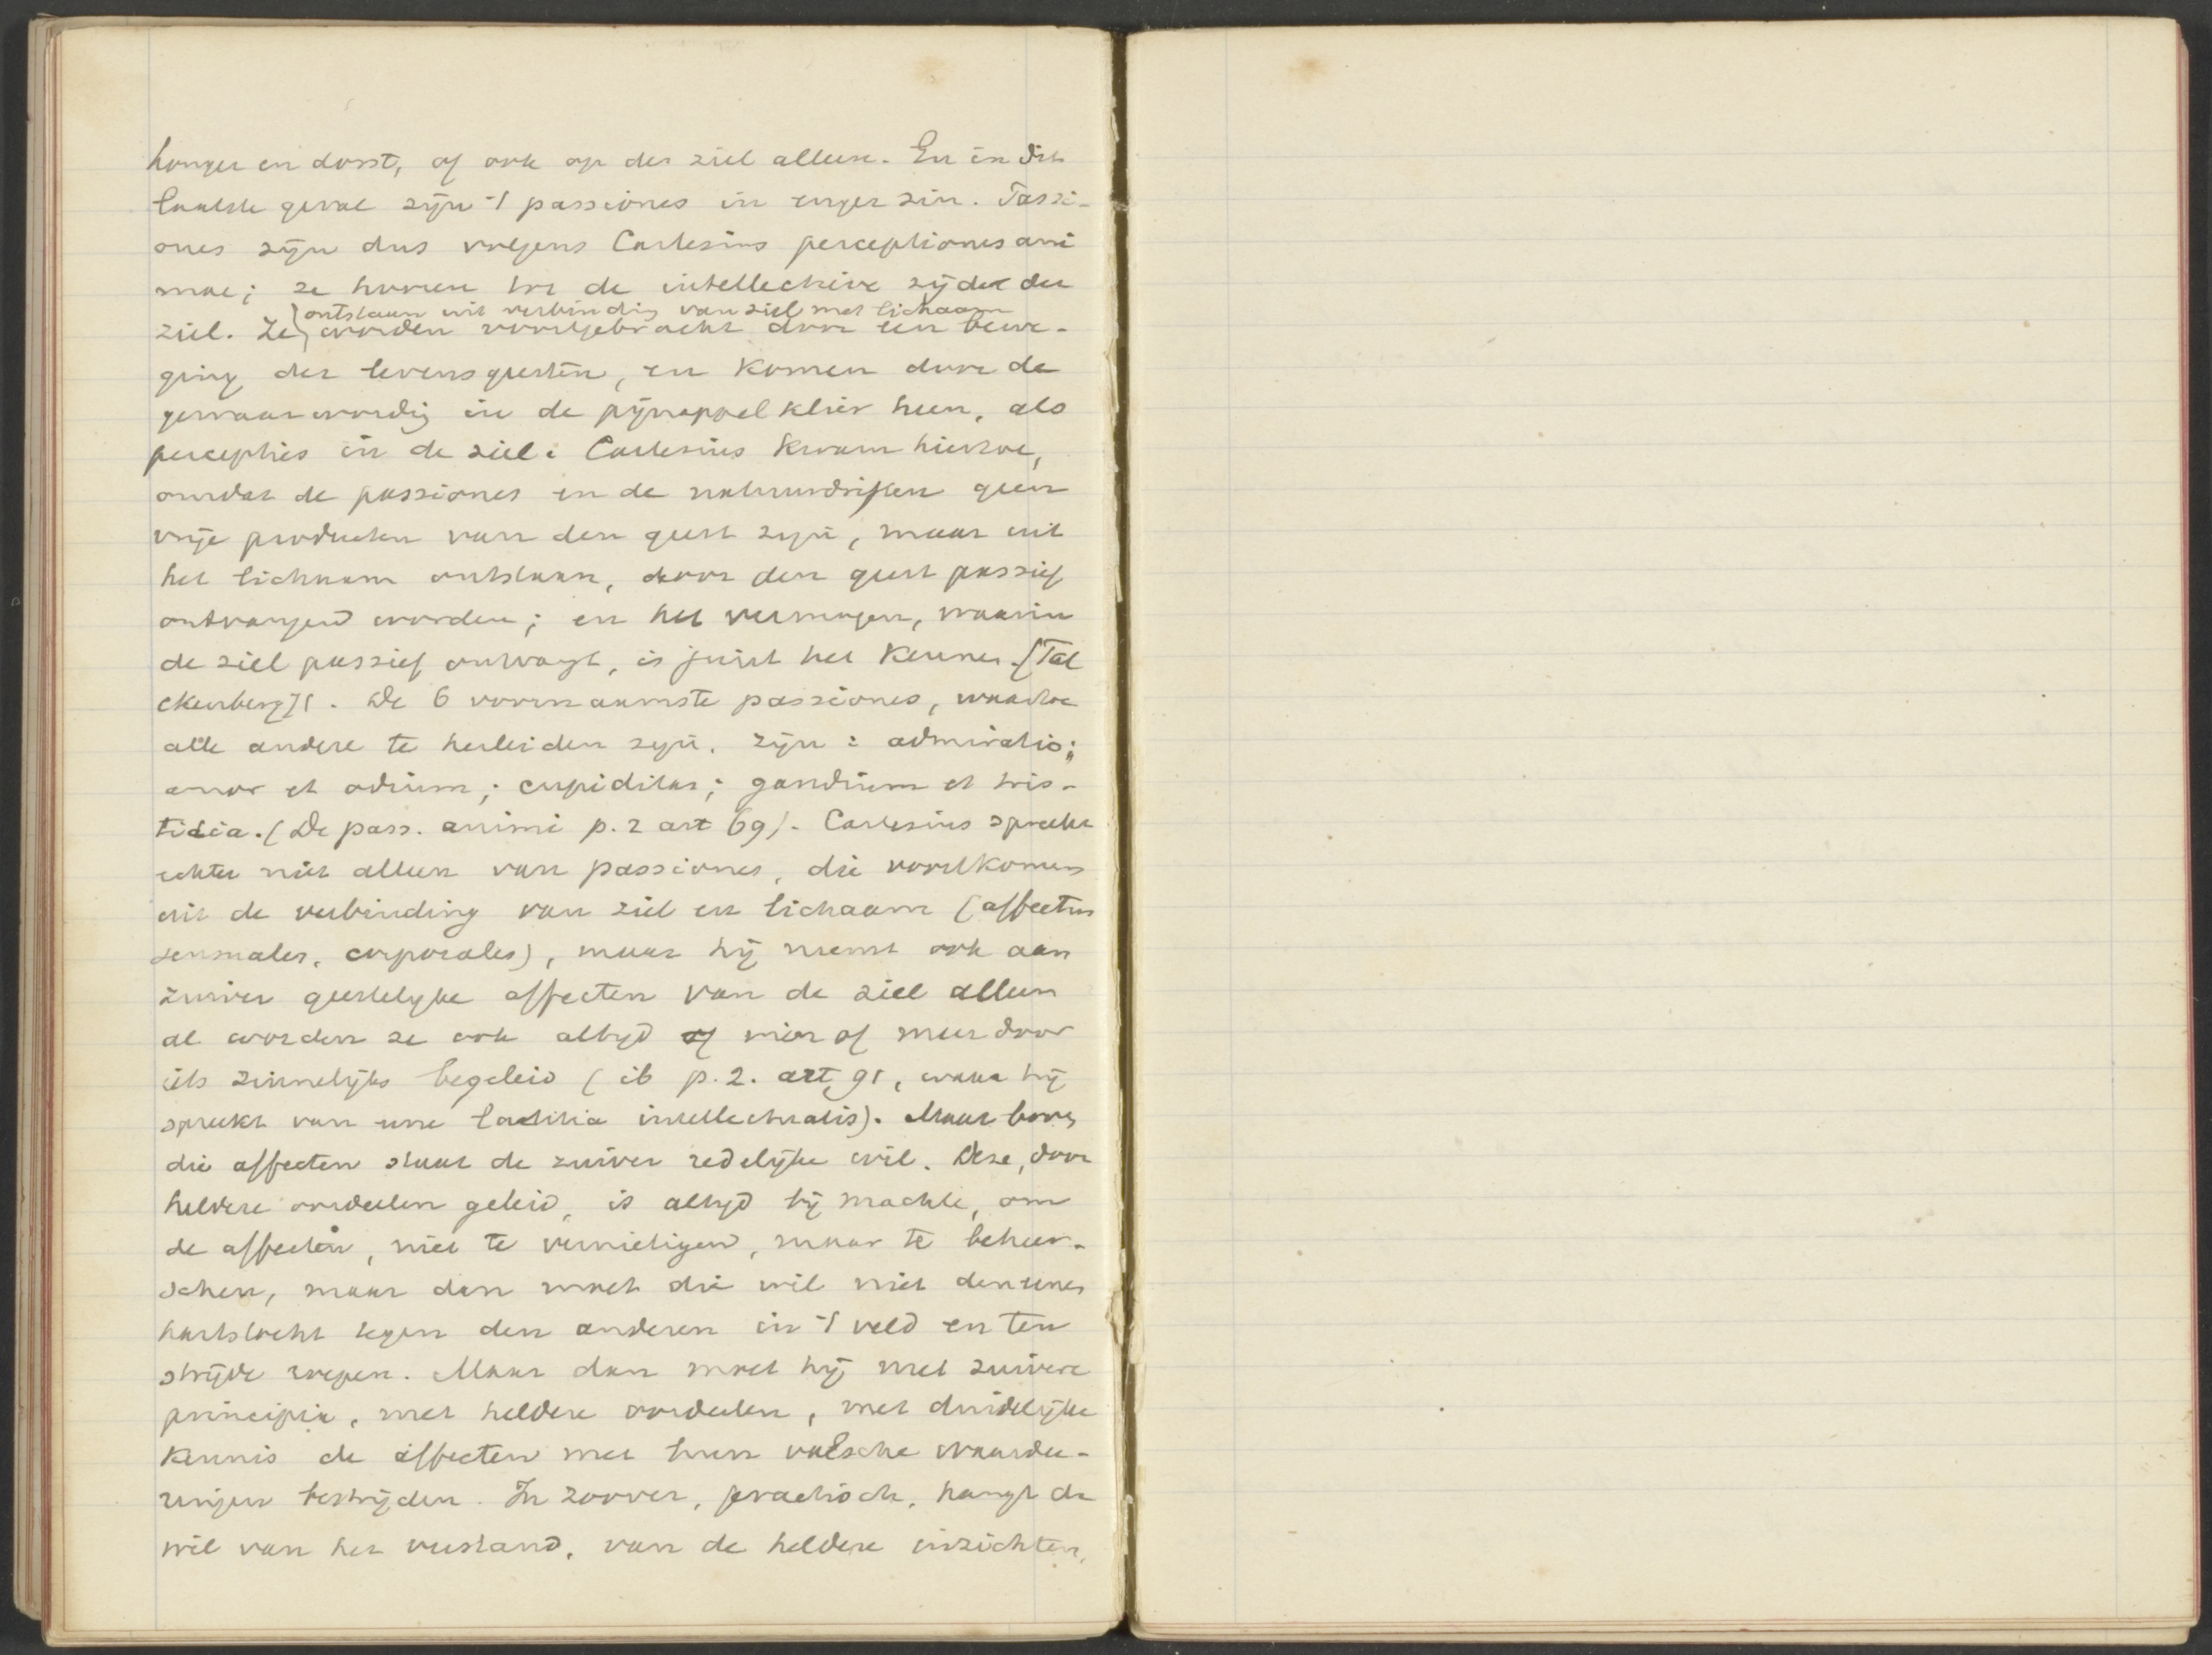 honger en dorst, of ook op der ziel alleen. En in dit
laatste geval zijn 't passiones in enger zin. Passi-
ones zijn dus volgens Cartesius perceptiones ani
mae; ze hooren tot de intellectieve zijde der
ontstaan uit verbinding van ziel met lichaam
ziel. Ze worden voortgebracht door een bewe-
ging der levensgeesten, en komen door de
gewaarwording in de pijnappelklier heen, als
percepties in de ziel. Cartesius kwam hiertoe,
omdat de passiones en de natuurdriften geen
vrije producten van den geest zijn, maar uit
het lichaam ontstaan, door den geest passief
ontvangen worden; en het vermogen, waarin
de ziel passief ontvangt, is juist het kennen. (
ckenberg). De 6 voornaamste passiones, waartoe
alle andere te herleiden zijn, zijn: admiratio;
amor et odium; cupiditas; gaudium et tris-
titia. (De pass. animi p. 2 art 69). Cartesius spreekt
echter niet alleen van passiones, die voortkomen
uit de verbinding van ziel en lichaam (affectus
sensuales, corporales), maar hij neemt ook aan
zuiver geestelijke affecten van de ziel alleen
al worden ze ook altijd min of meer door
iets zinnelijks begeleid (ib p. 2. art. 91, waar hij
spreekt van eene laetitia intellectualis). Maar boven
die affecten staat de zuiver redelijke wil. Deze, door
heldere oordeelen geleid, is altijd bij machte, om
de affecten, niet te vernietigen, maar te beheer-
schen, maar dan moet die wil niet den eenen
hartstocht tegen den anderen in 't veld en ten
strijde roepen. Maar dan moet hij met zuivere
principia, met heldere oordeelen, met duidelijke
kennis de affecten met hun valsche waardee-
ringen bestrijden. In zoover, practisch, hangt de
wil van het verstand, van de heldere inzichten,